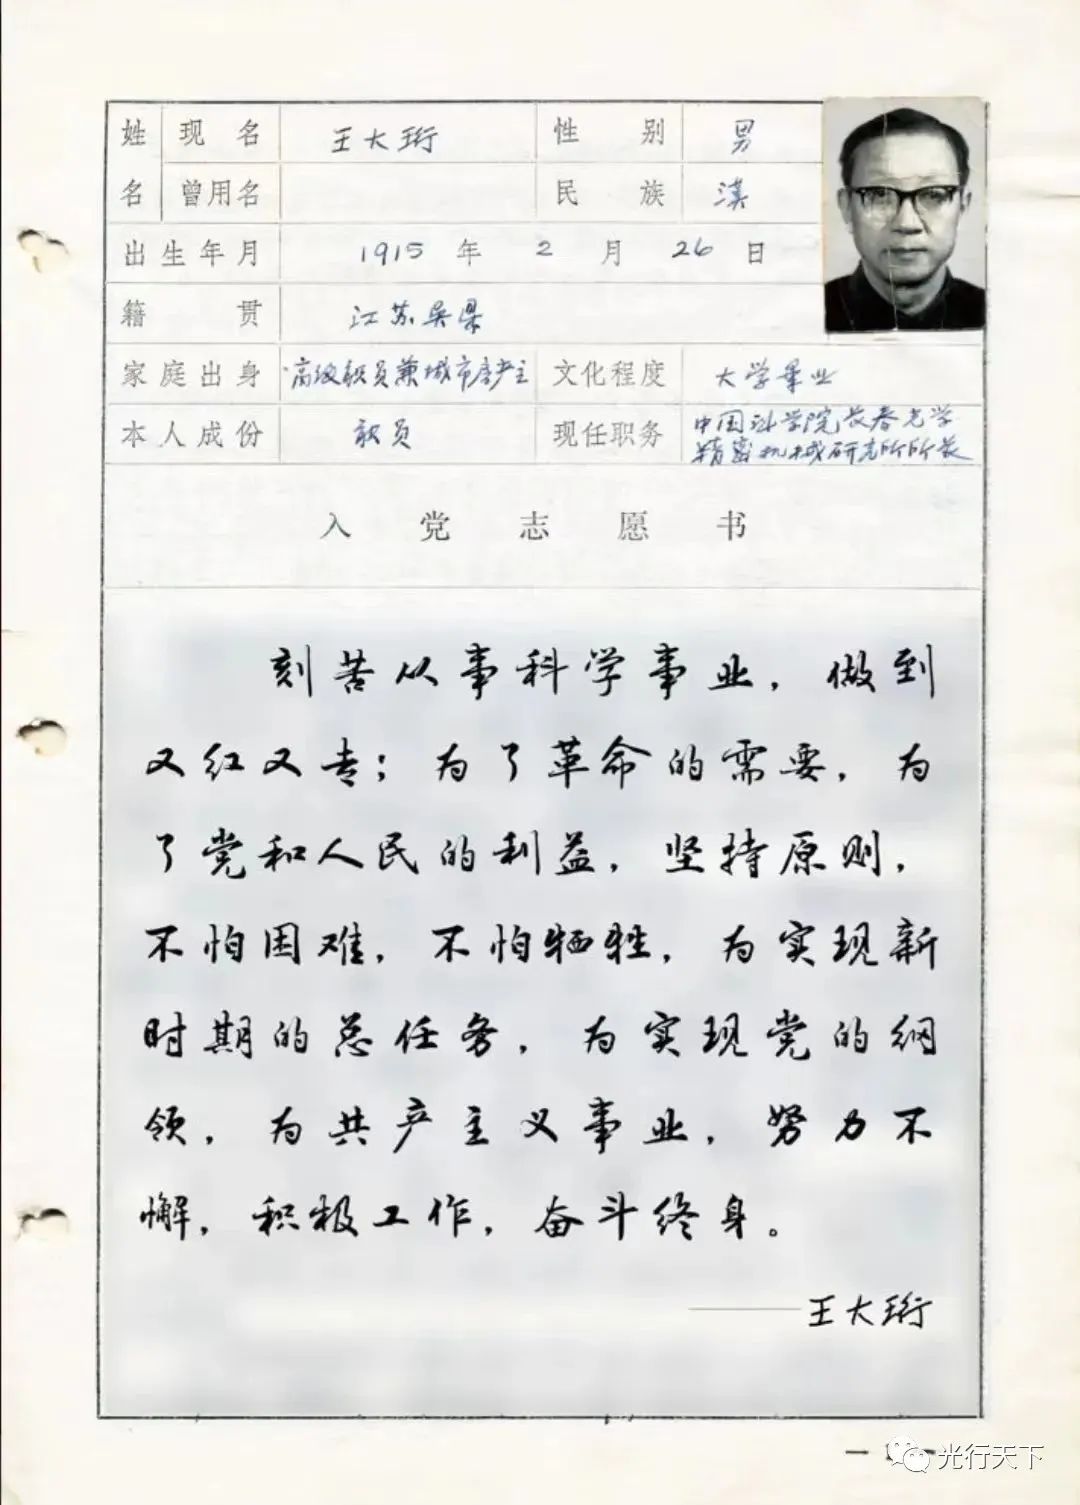 姓名 现名 王大珩 性别 男
曾用名 民族 漢
出生年月 1915年2月26日
籍贯 江苏吴县
家庭出身 高级职员兼城市房产主 文化程度 大学毕业
本人成份 职员 现任职务 中国科学院长春光学
精密机械研究所所长
入党志愿书
刻苦从事科学事业，做到
又红又专；为了革命的需要，为
了党和人民的利益，坚持原则，
不怕困难，不怕牺牲，为实现新
时期的总任务，为实现党的纲
领，为共产主义事业，努力不
懈，积极工作，奋斗终身。
——王大珩
— 1 —
光行天下